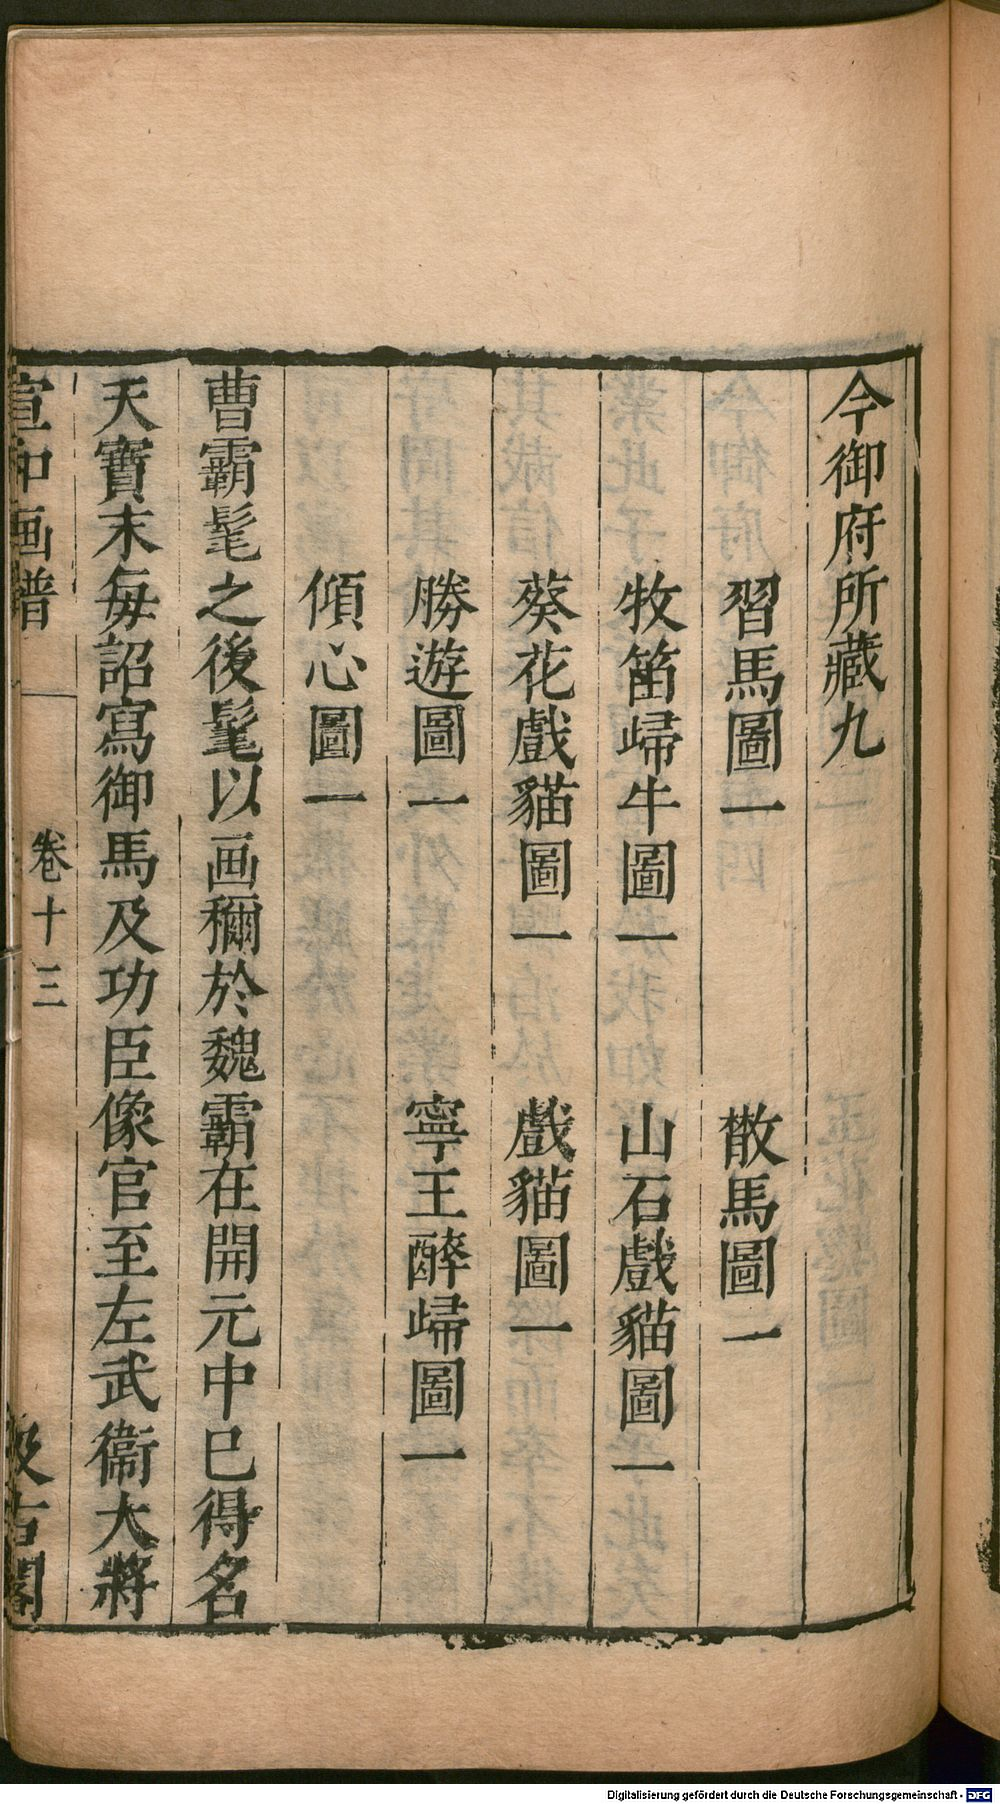 今御府所藏九
習馬圖一　散馬圖一
牧笛歸牛圖一　山石戲貓圖一
葵花戲貓圖一　戲貓圖一
勝遊圖一　寧王醉歸圖一
傾心圖一
曹霸髦之後髦以画稱於魏霸在開元中已得名
天寶末每詔寫御馬及功臣像官至左武衞大將
宣和画譜　卷十三　汲古閣
Digitalisierung gefördert durch die Deutsche Forschungsgemeinschaft - DFG